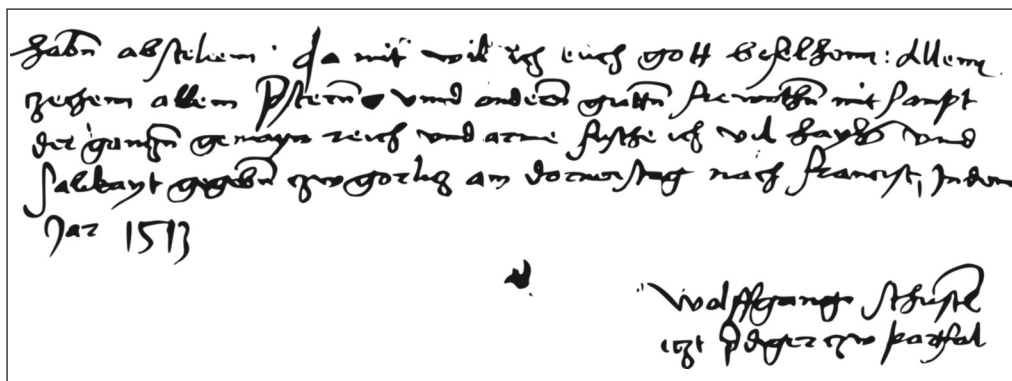 habn abstehem. Da mit wil ich euch gott befelhenn: Allem
zechem allem pstern vnnd andern guttn frewnthn mit sampt
der gantzn gemayn reich vnd arme fuche ich vil hayls vnnd
salikayt gegebn zw gorlitz am dornnstag nach francisi, In dem
Jar 1513
Wolffgang
itzt pdiger zw